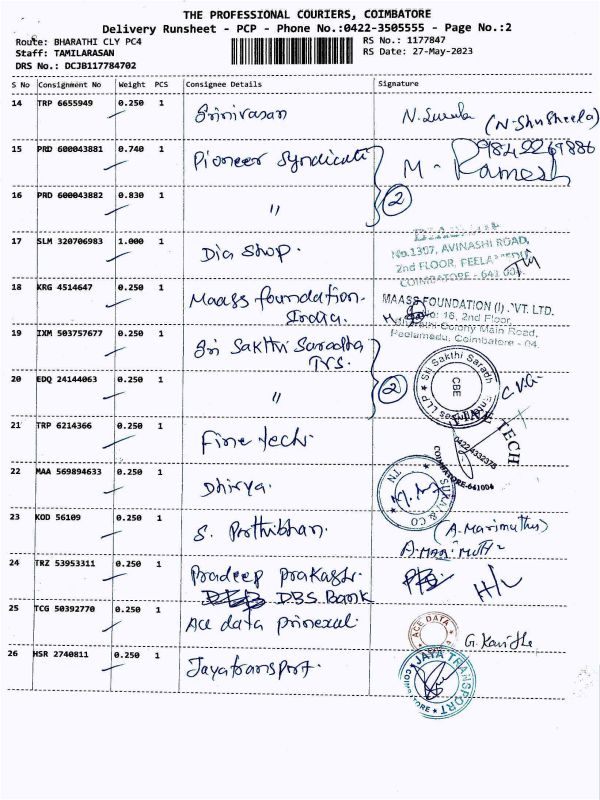 THE PROFESSIONAL COURIERS, COIMBATORE
Delivery Runsheet - PCP - Phone No.:0422-3505555 - Page No.:2
Route: BHARATHI CLY PC4 RS No.: 1177847
Staff: TAMILARASAN RS Date: 27-May-2023
DRS No.: DCJB117784702
S No Consignment No Weight PCS Consignee Details Signature
14 TRP 6655949 0.250 1 Srinivasan N. (N-Shusheela)
15 PRD 600043881 0.740 1 Pioneer Syndicate 9842269886
M. Ramesh
16 PRD 600043882 0.830 1 〃 2
17 SLM 320706983 1.000 1 Dia Shop.
No.1307, AVINASHI ROAD,
2nd FLOOR,
COIMBATORE - 641 004.
18 KRG 4514647 0.250 1 Maass foundation-
India.
MAASS FOUNDATION (I) VT. LTD.
16, 2nd Floor,
Colony Main Road,
Peelamedu, Coimbatore - 04.
19 IXM 503757677 0.250 1 Sri Sakthi Saradha
TVS.
Sri Sakthi Saradh LLP
CBE
20 EDQ 24144063 0.250 1 〃 2
21 TRP 6214366 0.250 1 Fine tech.
FINE TECH
04224332375
COIMBATORE-641004
22 MAA 569894633 0.250 1 Dhivya.
& CO TN
23 KOD 56109 0.250 1 S. Parthibhan. (A. Marimuthu)
24 TRZ 53953311 0.250 1 Pradeep prakash.
DBS Bank
25 TCG 50392770 0.250 1 Ace data
ACE DATA
26 HSR 2740811 0.250 1 Jayatransport.
JAYA TRANSPORT
COIMBATORE